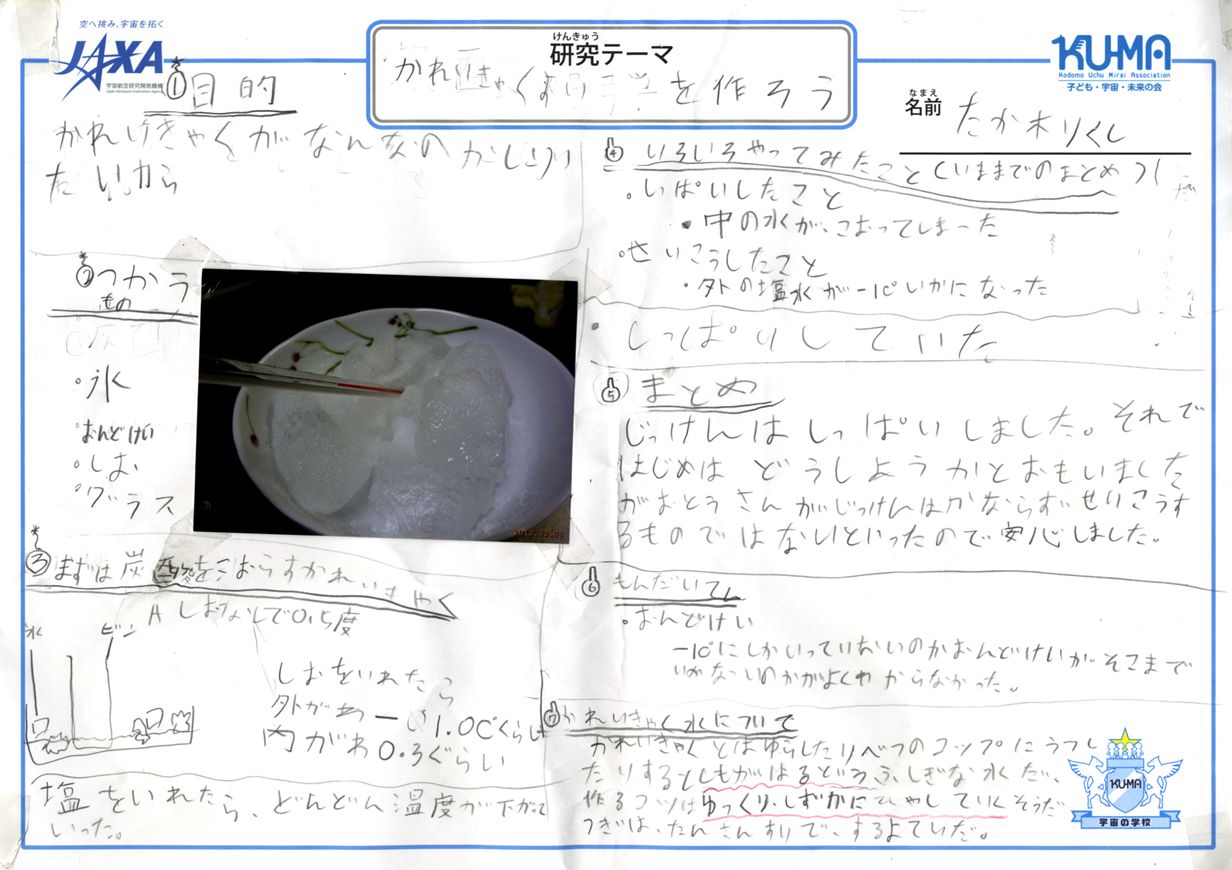 空へ挑み、宇宙を拓く
JAXA
宇宙航空研究開発機構
Japan Aerospace Exploration Agency
けんきゅう
研究テーマ
かれいきゃくすいを作ろう
KU-MA
Kodomo Uchu Mirai Association
子ども・宇宙・未来の会
なまえ
名前
①目的
かれいきゃくがなんなのかしりり
たいから
②つかう
もの
・氷
・おんどけい
・しお
・グラス
2012.02.04
③まずは炭酸をこおらすかれいきゃく
A しおなしで0.5度
氷 ビン
しおをいれたら
外がわ-1.0℃くらい
内がわ0.3ぐらい
塩をいれたら、どんどん温度が下がって
いった。
④いろいろやってみたこと(いままでのまとめ)
・しっぱいしたこと
・中の水が、こおってしまった
・せいこうしたこと
・外の塩水が-1℃いかになった
・しっぱりしていた
⑤まとめ
じっけんはしっぱいしました。それで
はじめはどうしようかとおもいました
がおとうさんがじっけんはかならずせいこうす
るものではないといったので安心しました。
⑥もんだいてん
・おんどけい
-1℃にしかいっていないのかおんどけいがそこまで
いかないのかがよくわからなかった。
⑦かれいきゃく水について
かれいきゃくとはゆらしたりべつのコップにうつし
たりするとしもがはるというふしぎな水だ、
作るコツはゆっくり、しずかにひやしていくそうだ
つぎは、たんさんすいで、するよていだ。
KU-MA
宇宙の学校